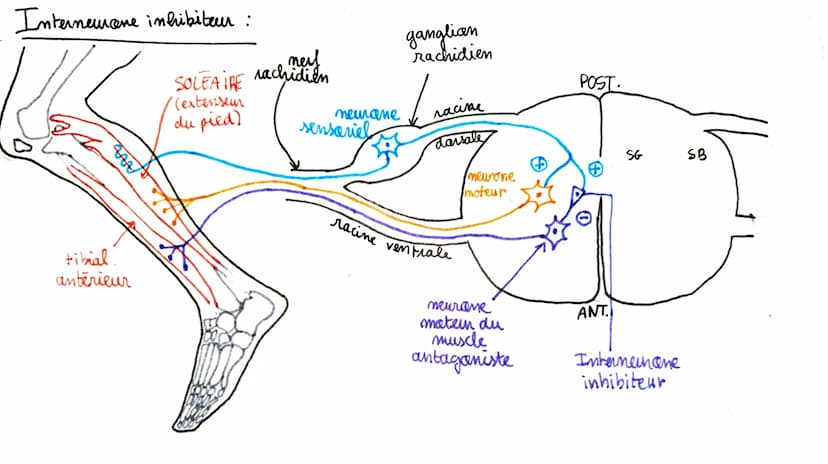 Interneurone inhibiteur :
ganglion
rachidien
nerf
rachidien
SOLÉAIRE
(extenseur
du pied)
neurone
sensoriel
racine
dorsale
POST.
+
+
SG
SB
neurone
moteur
-
racine ventrale
tibial
antérieur
ANT.
neurone
moteur du
muscle
antagoniste
Interneurone
inhibiteur